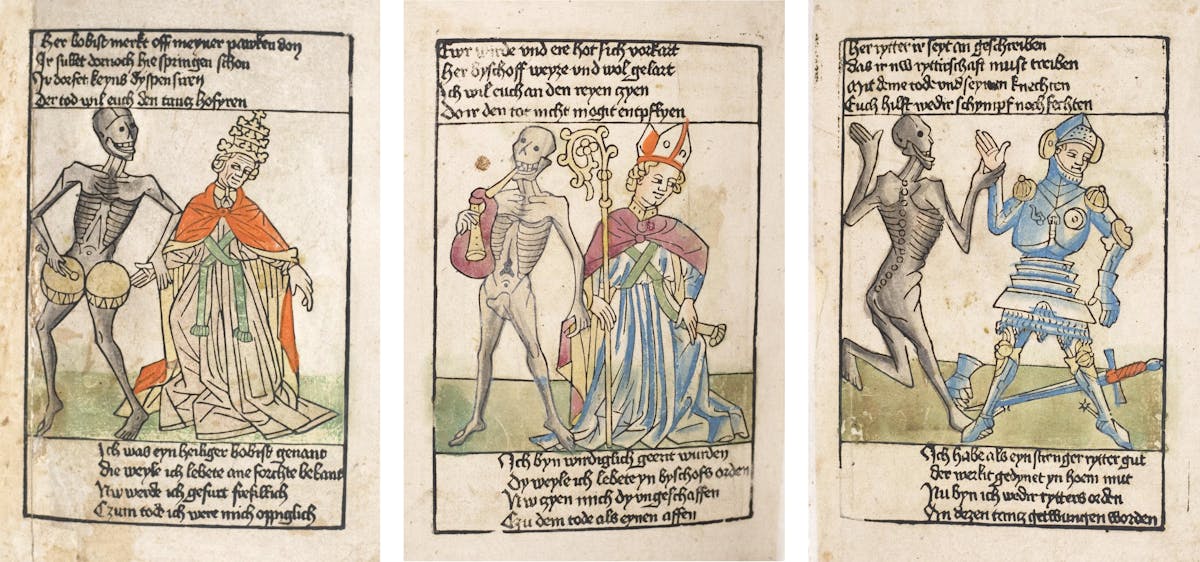 Her bobist merkt off meyner pawken don
Ir sullet dornoch hie springen schon
Ir dorfet keyns dyspensiren
Der tod wil euch den tantz hofyren
Ich was eyn heiliger bobist genant
Die weyle ich lebete ane forchte bekant
Nw werde ich gefurt freslich
Czum tode ich were mich oppiglich
Ewr wirde und ere hot sich vorkart
Her byschoff weyze und wol gelart
Ich wil euch an den reyen czyen
Do ir den tot nicht mogit entpflyen
Ich byn wirdiglich geerit wurden
Dy weyle ich lebete yn byschofs orden
Nw czyen mich dy ungeschaffen
Czu dem tode als eynen affen
Her rytter ir seyt an geschreiben
Das ir nw rytterschaft must treiben
Mit deme tode und seynen knechten
Euch hilft wedir schympf noch fechten
Ich habe als eyn strenger rytter gut
Der werlit gedynet yn hoem mut
Nu byn ich wedir rytters orden
An dezen tantz getwungen worden